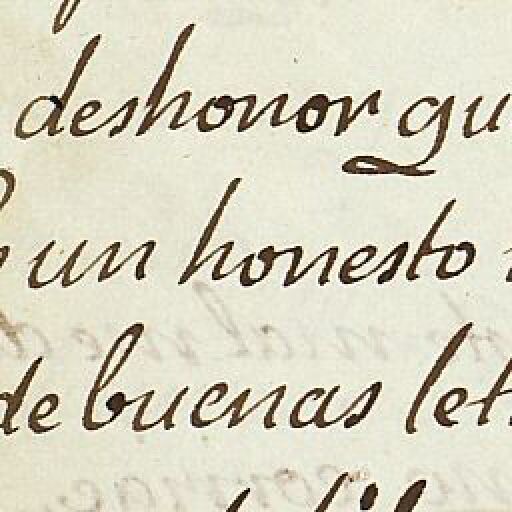 deshonor qu
un honesto
de buenas let